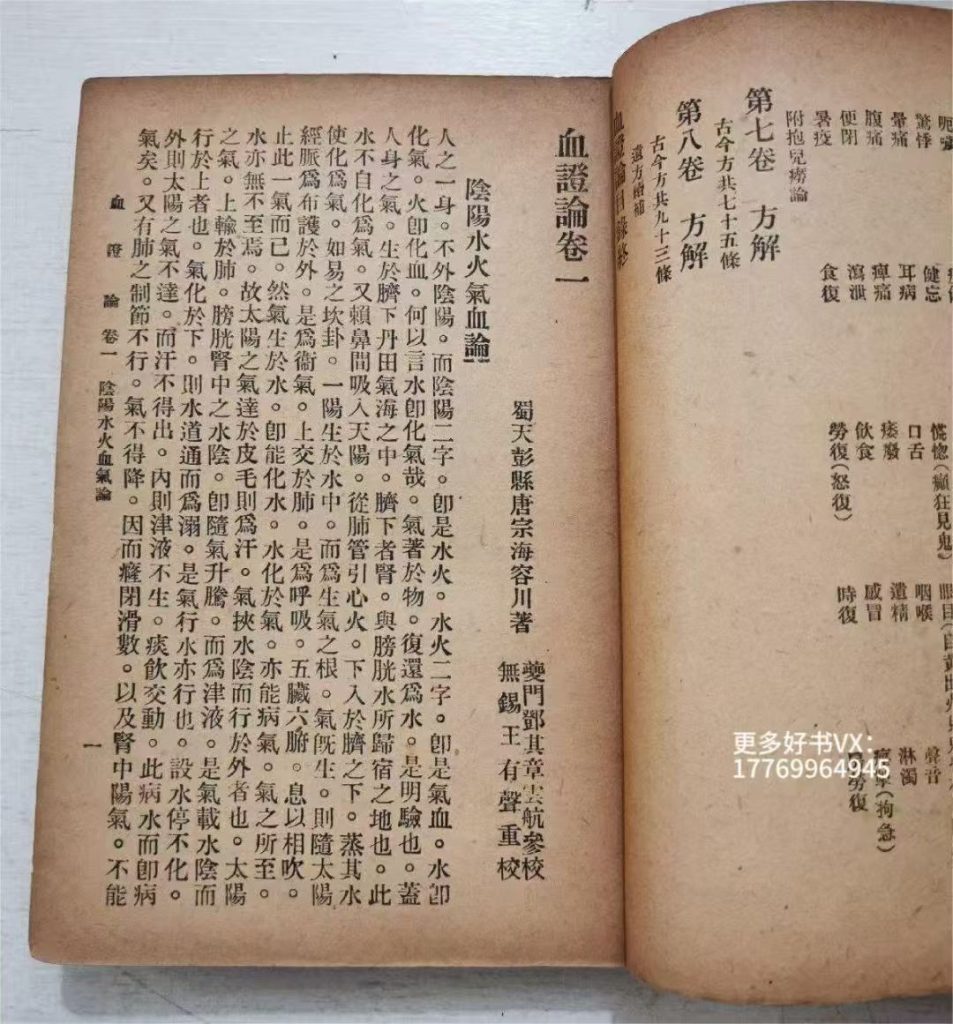 驚悸 健忘 慌惚(癲狂見鬼) 眼目
暈痛 耳病 口舌 咽喉 聲音
腹痛 痺痛 痿廢 遺精 淋濁
便閉 瀉泄 飲食 感冒 (拘急)
暑疫 食復 勞復(怒復) 時復 勞復
附抱兒癆論
第七卷 方解
古今方共七十五條
第八卷 方解
古今方共九十三條
遺方補
血證論目錄終
血證論卷一
蜀天彭縣唐宗海容川著
夔門鄧其章雲航參校
無錫王有聲重校
陰陽水火氣血論
人之一身。不外陰陽。而陰陽二字。卽是水火。水火二字。卽是氣血。水卽
化氣。火卽化血。何以言水卽化氣哉。氣著於物。復還爲水。是明驗也。蓋
人身之氣。生於臍下丹田氣海之中。臍下者腎。與膀胱水所歸宿之地也。此
水不自化爲氣。又賴鼻間吸入天陽。從肺管引心火。下入於臍之下。蒸其水
使化爲氣。如易之坎卦。一陽生於水中。而爲生氣之根。氣旣生。則隨太陽
經脈爲布護於外。是爲衞氣。上交於肺。是爲呼吸。五臟六腑。息以相吹。
止此一氣而已。然氣生於水。卽能化水。水化於氣。亦能病氣。氣之所至。
水亦無不至焉。故太陽之氣達於皮毛則爲汗。氣挾水陰而行於外者也。太陽
之氣。上輸於肺。膀胱腎中之水陰。卽隨氣升騰。而爲津液。是氣載水陰而
行於上者也。氣化於下。則水道通而爲溺。是氣行水亦行也。設水停不化。
外則太陽之氣不達。而汗不得出。內則津液不生。痰飲交動。此病水而卽病
氣矣。又有肺之制節不行。氣不得降。因而癃閉滑數。以及腎中陽氣。不能
血證論 卷一 陰陽水火血氣論
一
更多好书VX：
17769964945